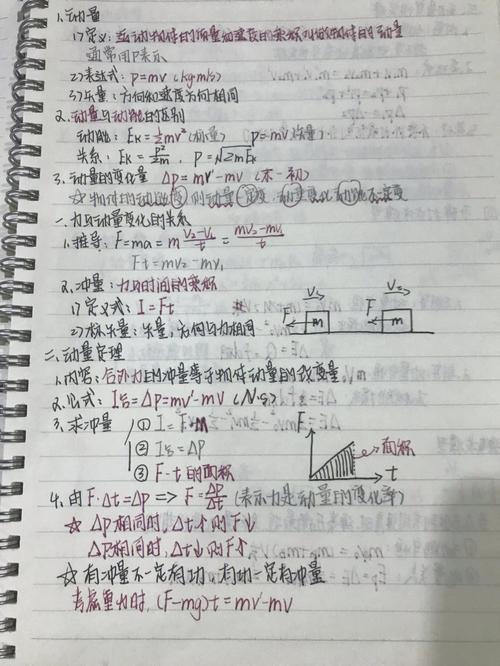 1.动量
1)定义:运动物体的质量和速度的乘积叫做物体的动量
通常用P表示
2)表达式:p=mv (kg·m/s)
3)矢量:方向和速度方向相同
2.动量与动能的区别
动能:Ek=½mv² (标量) p=mv(矢量)
关系:Ek=p²/2m , P=√2mEk
3.动量的变化量 Δp=mv'-mv (末-初)
☆物体的动能 则动量一定变,动量变化动能不一定变
一.力与动量变化的关系
1.推导:F=ma=m (V₂-V₁)/t = (mv₂-mv₁)/t
Ft=mv₂-mv₁
2.冲量:力与时间的乘积
1)定义式:I=Ft
2)标矢量:矢量,方向与力相同
V₁ V₂
F m F m
二.动量定理
1.内容:合外力的冲量等于物体动量的改变量
2.公式:I合=Δp=mv'-mv (N·s)
3.求冲量 ① I=F·
② I合=Δp
③ F-t的面积
F 面积 t
4.由F·Δt=Δp => F=Δp/Δt (表示力是动量的变化率)
☆ Δp相同时,Δt↑则F↓
Δp相同时,Δt↓则F↑
☆有冲量不一定有功,有功一定有冲量
考虑重力时,(F-mg)t=mv'-mv